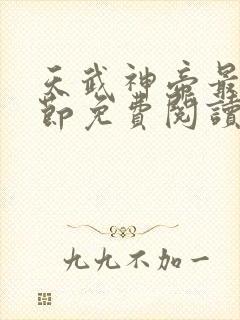 天武神帝最
節免費閱讀
九九不加一